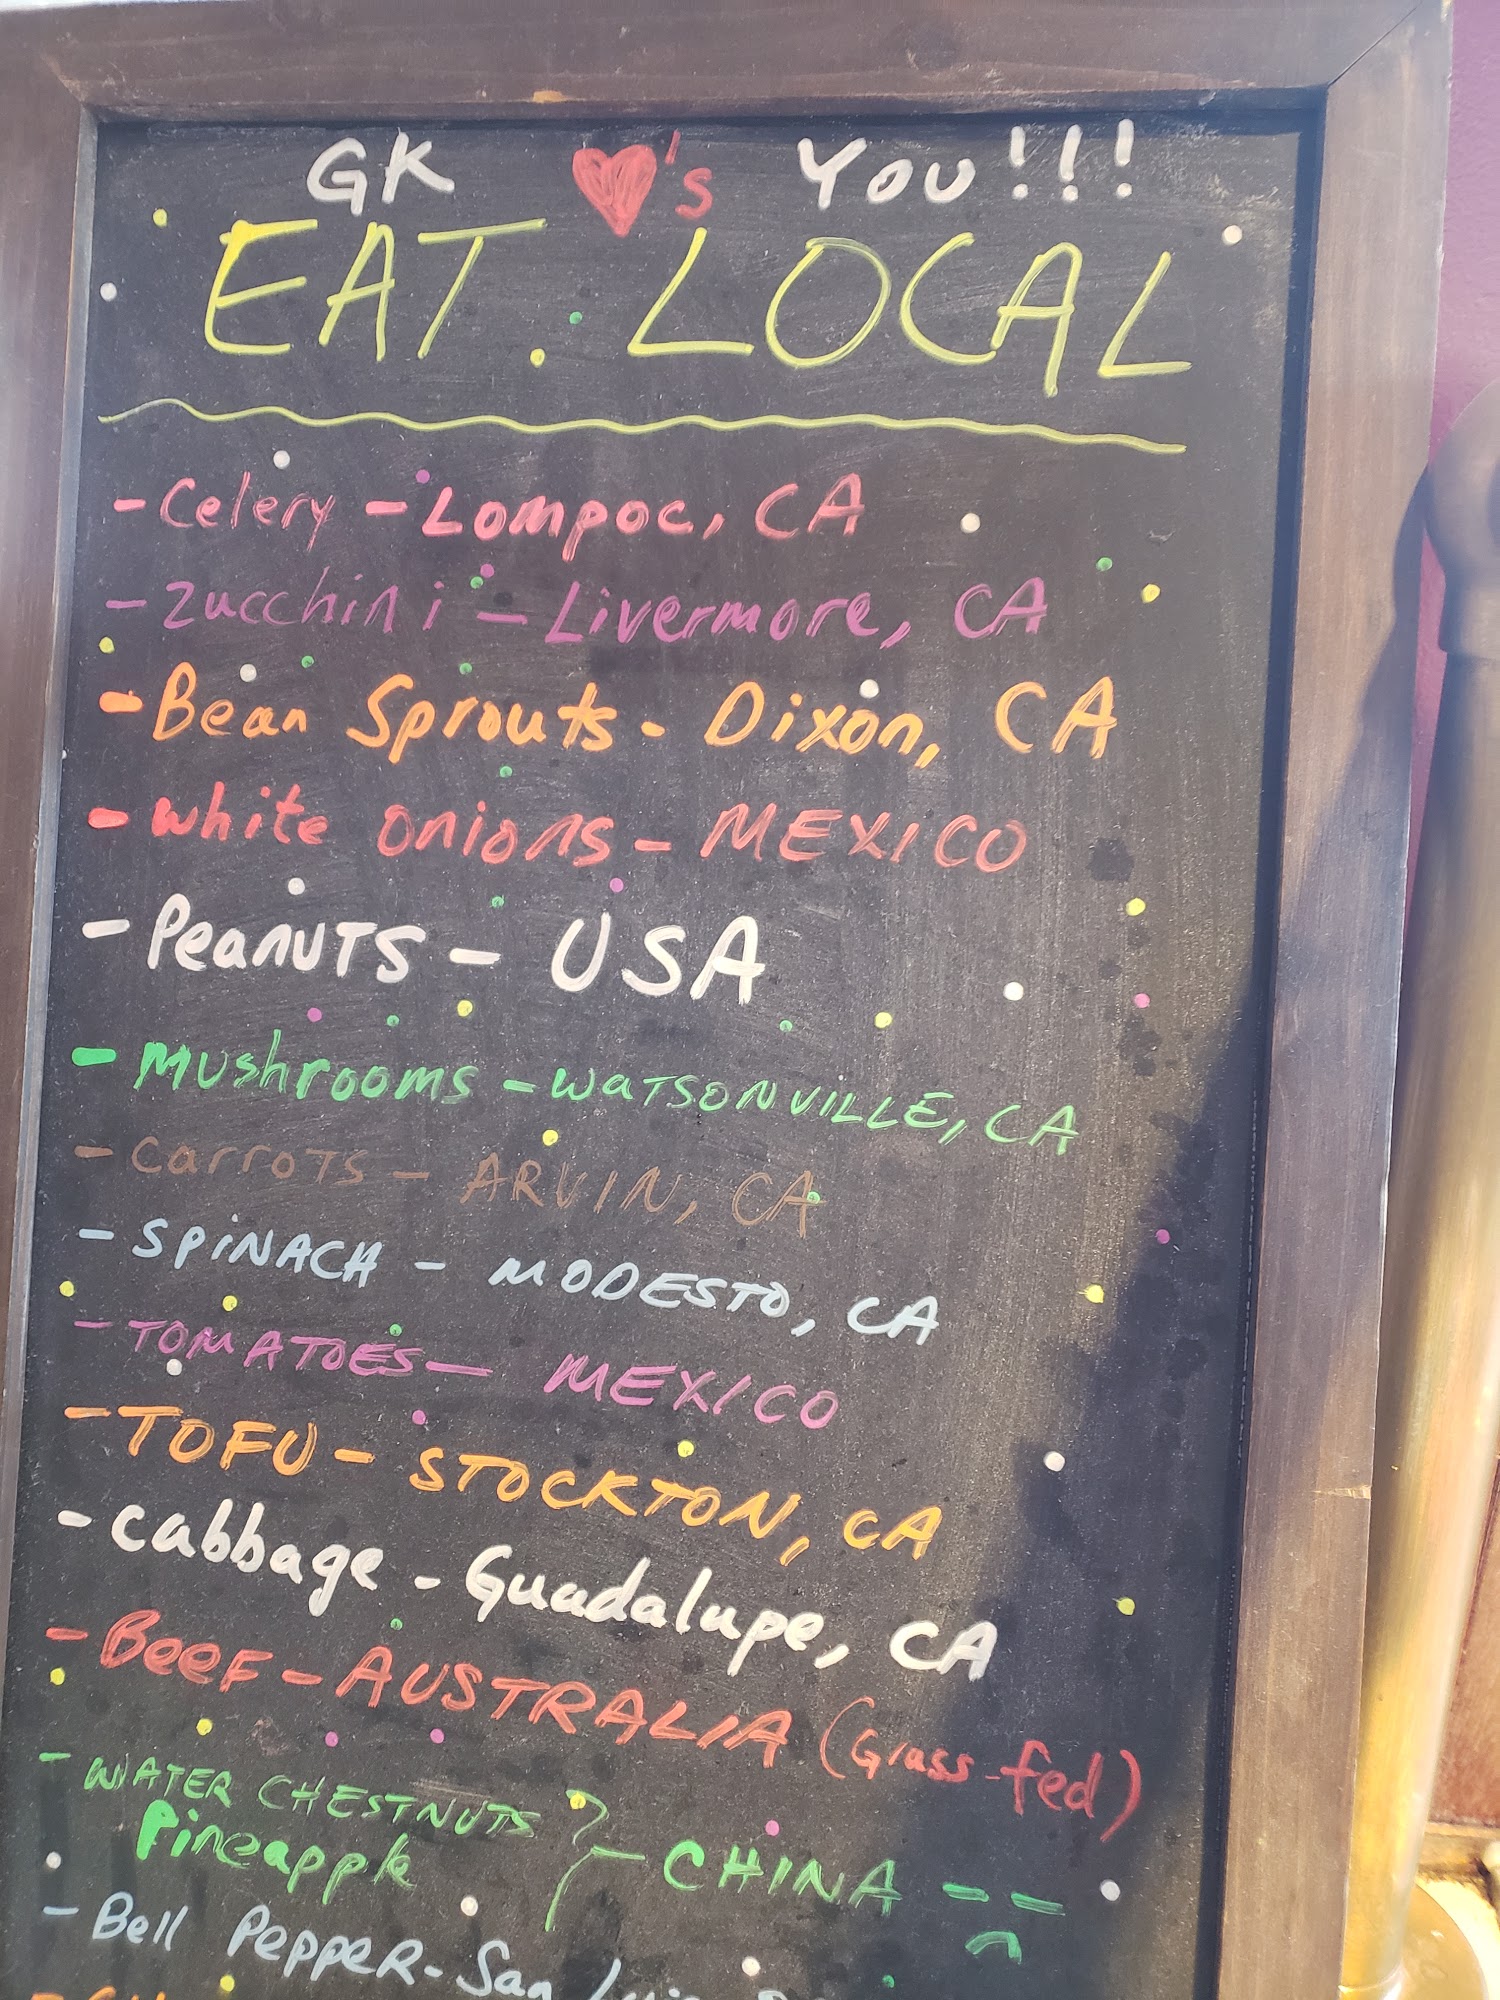 GK ♥'s YOU!!!
EAT LOCAL
- Celery - Lompoc, CA
- Zucchini - Livermore, CA
- Bean Sprouts - Dixon, CA
- White onions - MEXICO
- PeanuTS - USA
- Mushrooms - WATSONVILLE, CA
- CarroTS - ARVIN, CA
- SPiNACH - MODESTO, CA
- TOMATOES - MEXICO
- TOFU - STOCKTON, CA
- Cabbage - Guadalupe, CA
- BeeF - AUSTRALIA (Grass-fed)
- WATER CHESTNUTS
Pineapple - CHINA
- Bell PePPeR - San Luis